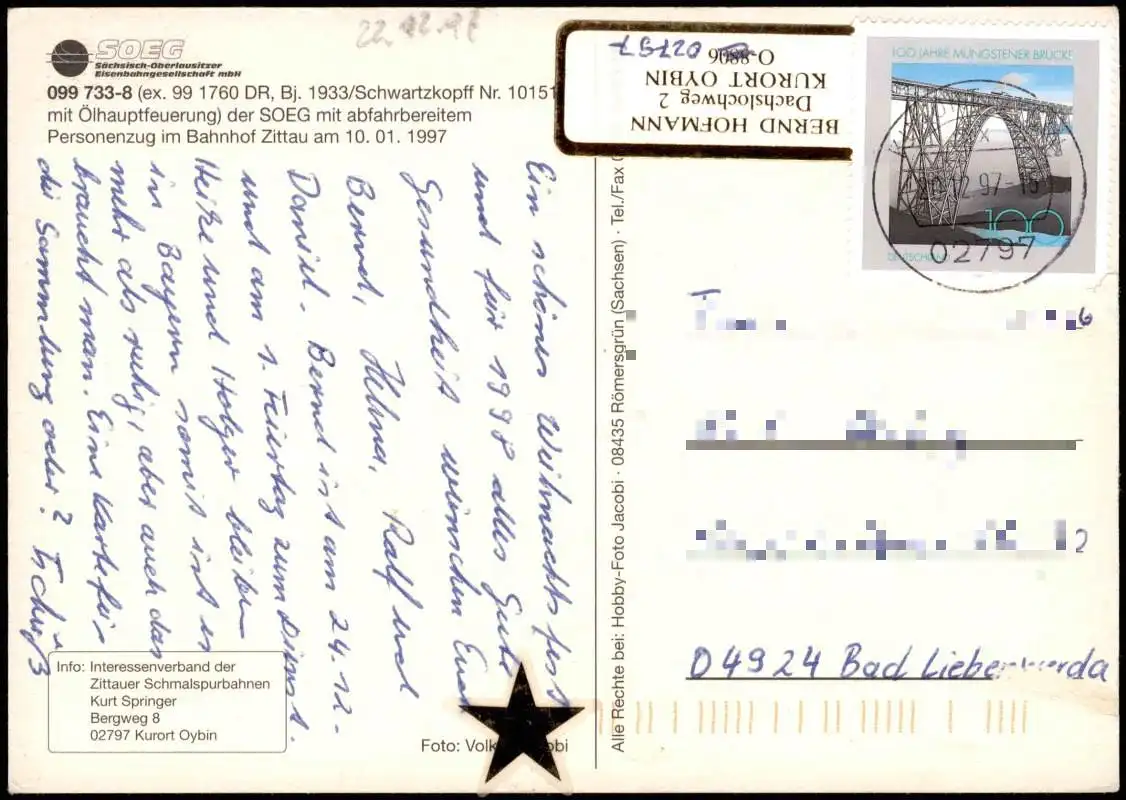 22.12.97
SOEG
Sächsisch-Oberlausitzer
Eisenbahngesellschaft mbH
099 733-8 (ex. 99 1760 DR, Bj. 1933/Schwartzkopff Nr. 10151
mit Ölhauptfeuerung) der SOEG mit abfahrbereitem
Personenzug im Bahnhof Zittau am 10. 01. 1997
Ein schönes Weihnachtsfest
und für 1998 alles Gute
Gesundheit wünschen Euch
Bernd, Helma, Ralf und
Daniel. Bernd ist am 24.12.
und am 1. Feiertag zum Dienst.
Heike und Holger bleiben
in Bayern somit ist es
mehr als ruhig, aber auch das
braucht man. Eine Karte für
die Sammlung oder? Tschüß
Info: Interessenverband der
Zittauer Schmalspurbahnen
Kurt Springer
Bergweg 8
02797 Kurort Oybin
Foto: Volk obi
Alle Rechte bei: Hobby-Foto Jacobi · 08435 Römersgrün (Sachsen) · Tel./Fax
BERND HOFMANN
Dachslochweg 2
KURORT OYBIN
O-8806 02797
100 JAHRE MÜNGSTENER BRÜCKE
100
DEUTSCHLAND
12.97-16
02797
04924 Bad Liebenwerda